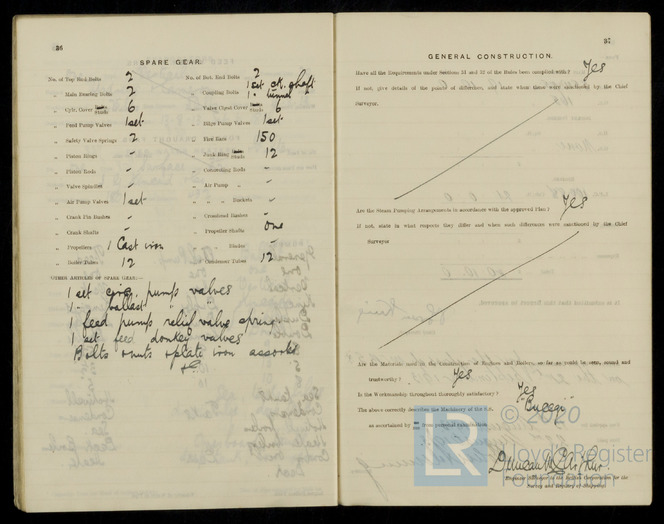 36
SPARE GEAR.
No. of Top End Bolts 2 No. of Bot. End Bolts 2
„ Main Bearing Bolts 2 „ Coupling Bolts 1 set crk. shaft
1 „ tunnel
„ Cylr. Cover Studs 6 „ Valve Chest Cover Studs 6
„ Feed Pump Valves 1 set „ Bilge Pump Valves 1 set
„ Safety Valve Springs 2 „ Fire Bars 150
„ Piston Rings – „ Junk Ring Studs 12
„ Piston Rods – „ Connecting Rods –
„ Valve Spindles – „ Air Pump „ –
„ Air Pump Valves 1 set „ „ Buckets –
„ Crank Pin Bushes – „ Crosshead Bushes –
„ Crank Shafts – „ Propeller Shafts One
„ Propellers 1 Cast iron „ Blades –
„ Boiler Tubes 12 „ Condenser Tubes 12
OTHER ARTICLES OF SPARE GEAR:—
1 set circ. pumps valves
1 „ ballast „ „
1 feed pumps relief valve spring
1 set feed donkey valves
Bolts & nuts & plate iron assorted
&c
37
GENERAL CONSTRUCTION.
Have all the Requirements under Sections 31 and 32 of the Rules been complied with? Yes
If not, give details of the points of difference, and state when these were sanctioned by the Chief
Surveyor.
Are the Steam Pumping Arrangements in accordance with the approved Plan? Yes
If not, state in what respects they differ and when such differences were sanctioned by the Chief
Surveyor
Are the Materials used in the Construction of Engines and Boilers, so far as could be seen, sound and
trustworthy? Yes
Is the Workmanship throughout thoroughly satisfactory? Yes
The above correctly describes the Machinery of the S.S.
as ascertained by me from personal examination
Engineer Surveyor to the British Corporation for the
Survey and Registry of Shipping.
© 2020
LR
Lloyd's Register
Foundation